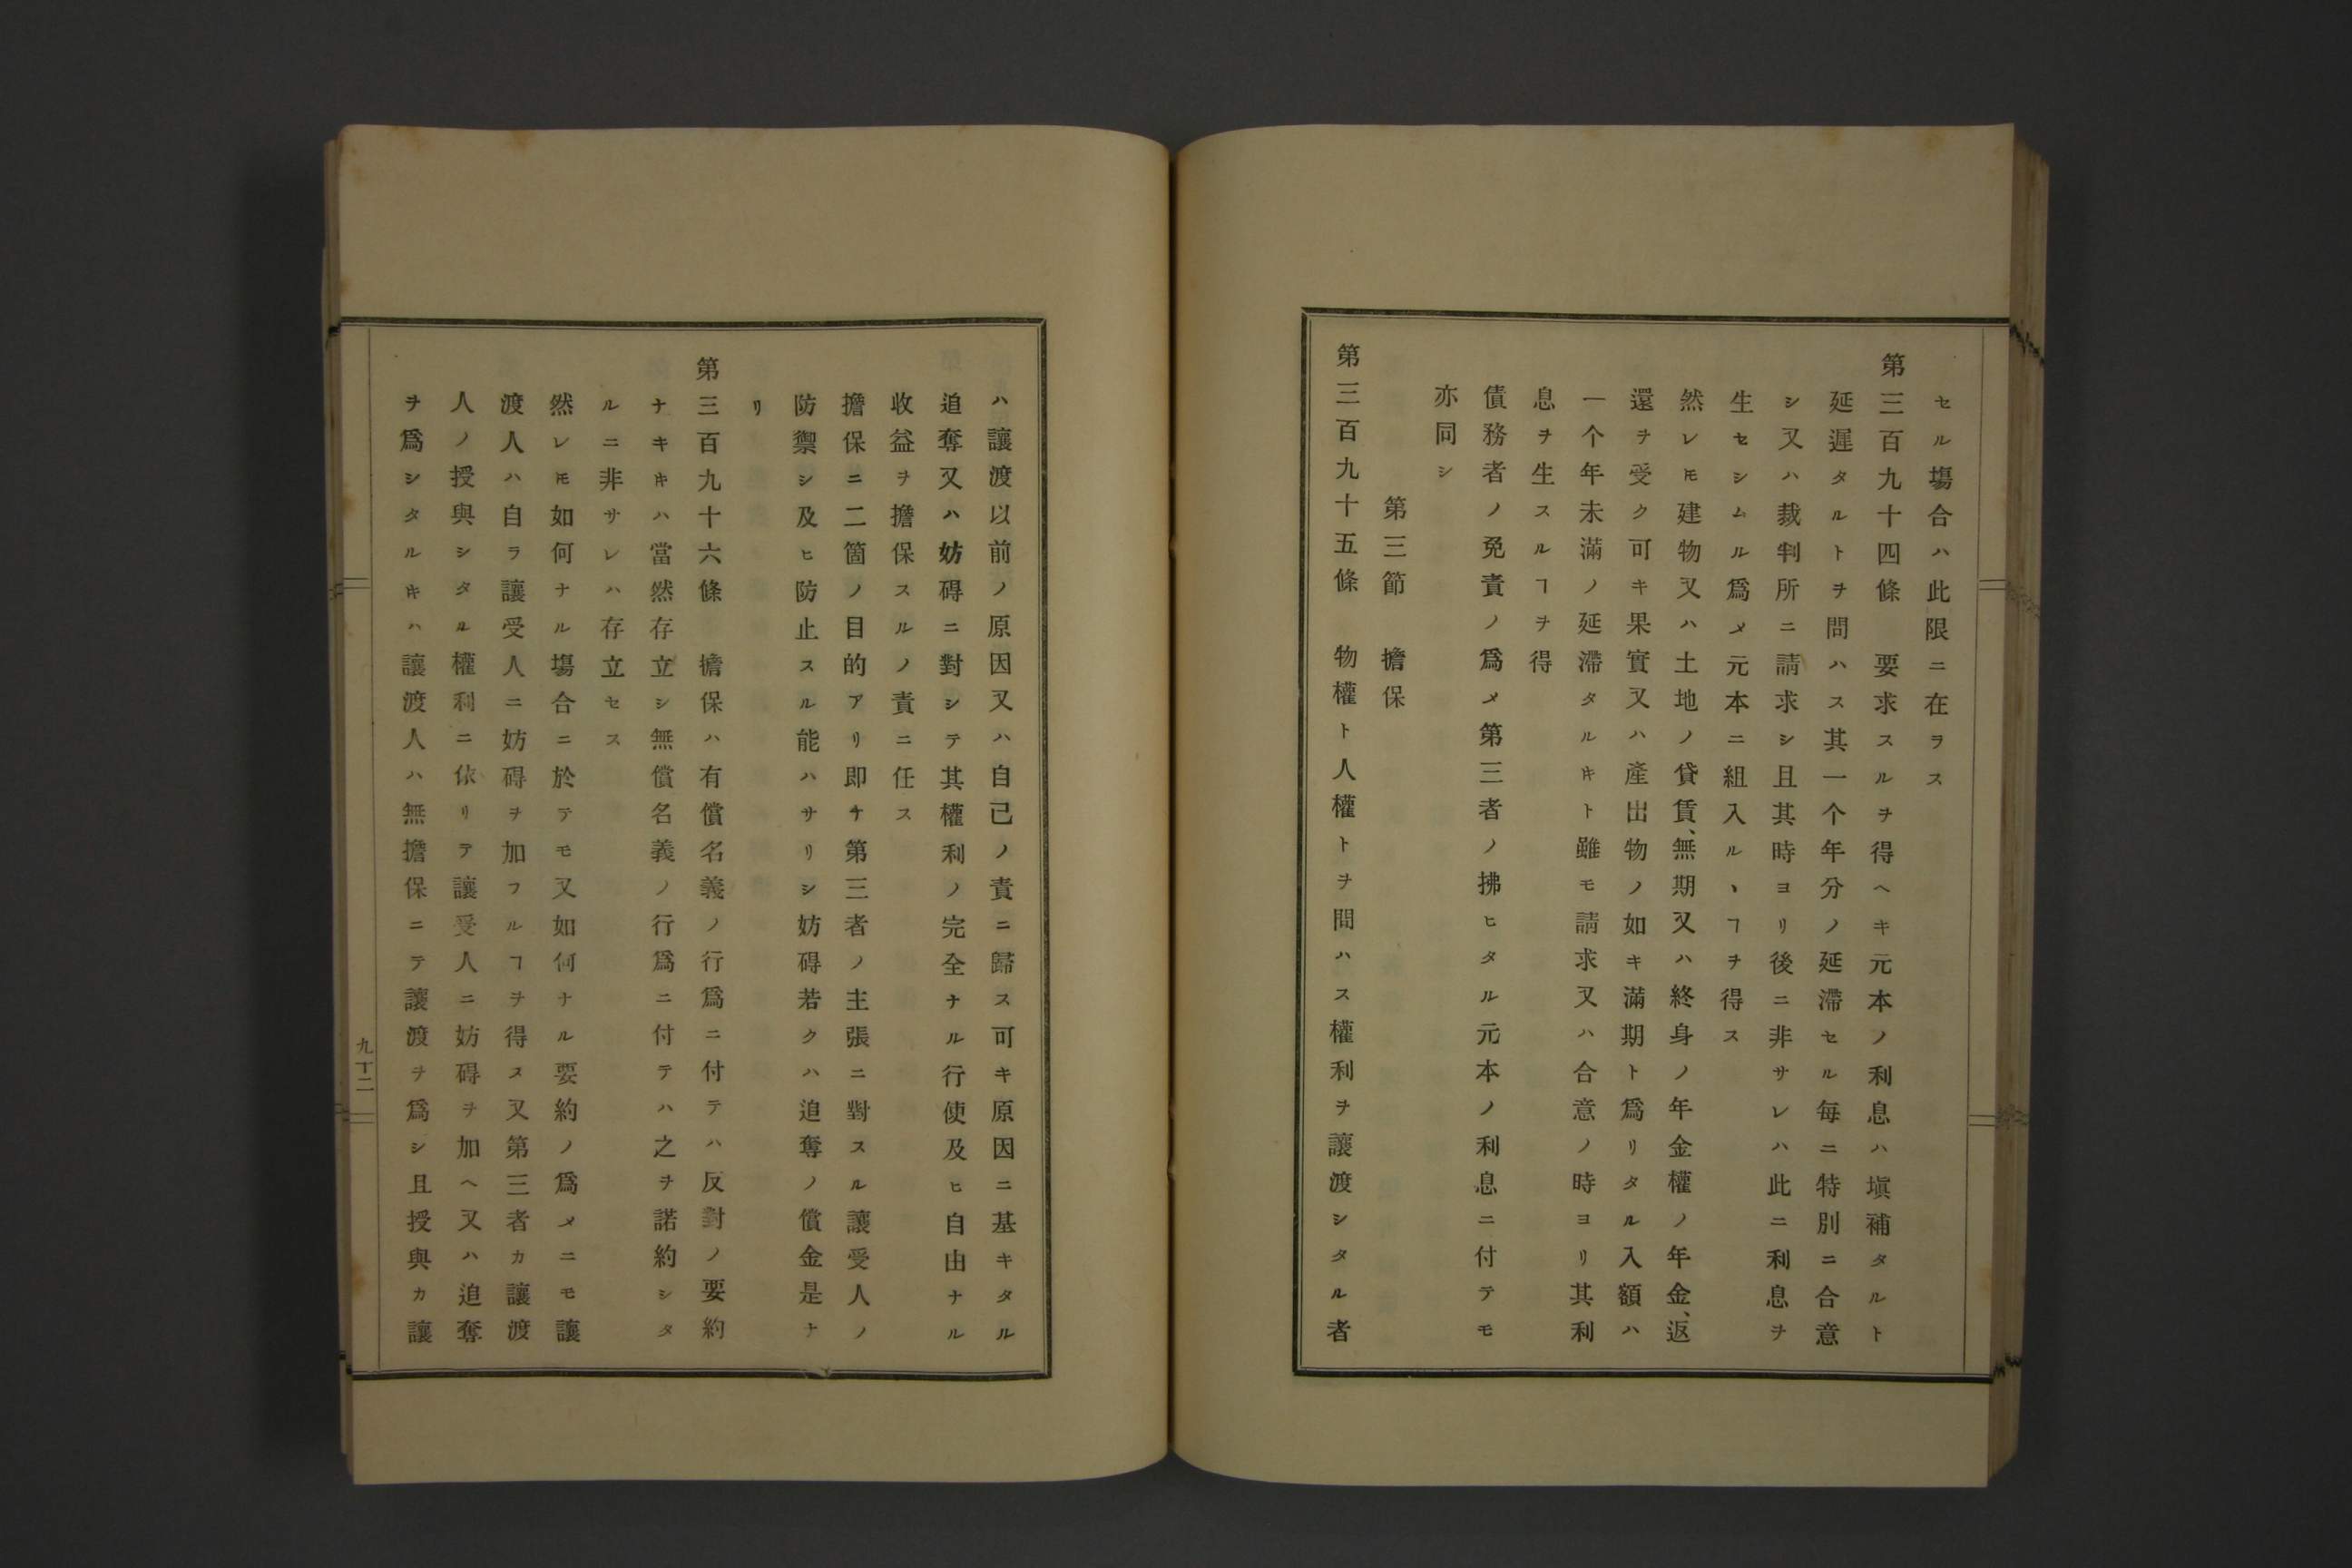 セル塲合ハ此限ニ在ラス
第三百九十四條　要求スルヲ得ヘキ元本ノ利息ハ塡補タルト
延遲タルトヲ問ハス其一个年分ノ延滯セル每ニ特別ニ合意
シ又ハ裁判所ニ請求シ且其時ヨリ後ニ非サレハ此ニ利息ヲ
生セシムル爲メ元本ニ組入ルヽヿヲ得ス
然レ𪜈建物又ハ土地ノ貸賃、無期又ハ終身ノ年金權ノ年金、返
還ヲ受ク可キ果實又ハ產出物ノ如キ滿期ト爲リタル入額ハ
一个年未滿ノ延滯タルキト雖モ請求又ハ合意ノ時ヨリ其利
息ヲ生スルヿヲ得
債務者ノ免責ノ爲メ第三者ノ拂ヒタル元本ノ利息ニ付テモ
亦同シ
第三節　擔保
第三百九十五條　物權ト人權トヲ問ハス權利ヲ讓渡シタル者
ハ讓渡以前ノ原因又ハ自己ノ責ニ歸ス可キ原因ニ基キタル
追奪又ハ妨碍ニ對シテ其權利ノ完全ナル行使及ヒ自由ナル
收益ヲ擔保スルノ責ニ任ス
擔保ニ二箇ノ目的アリ卽チ第三者ノ主張ニ對スル讓受人ノ
防禦シ及ヒ防止スル能ハサリシ妨碍若クハ追奪ノ償金是ナ
リ
第三百九十六條　擔保ハ有償名義ノ行爲ニ付テハ反對ノ要約
ナキ𪜈ハ當然存立シ無償名義ノ行爲ニ付テハ之ヲ諾約シタ
ルニ非サレハ存立セス
然レ𪜈如何ナル塲合ニ於テモ又如何ナル要約ノ爲メニモ讓
渡人ハ自ラ讓受人ニ妨碍ヲ加フルヿヲ得ス又第三者カ讓渡
人ノ授與シタル權利ニ依リテ讓受人ニ妨碍ヲ加ヘ又ハ追奪
ヲ爲シタルキハ讓渡人ハ無擔保ニテ讓渡ヲ爲シ且授與カ讓
九十二